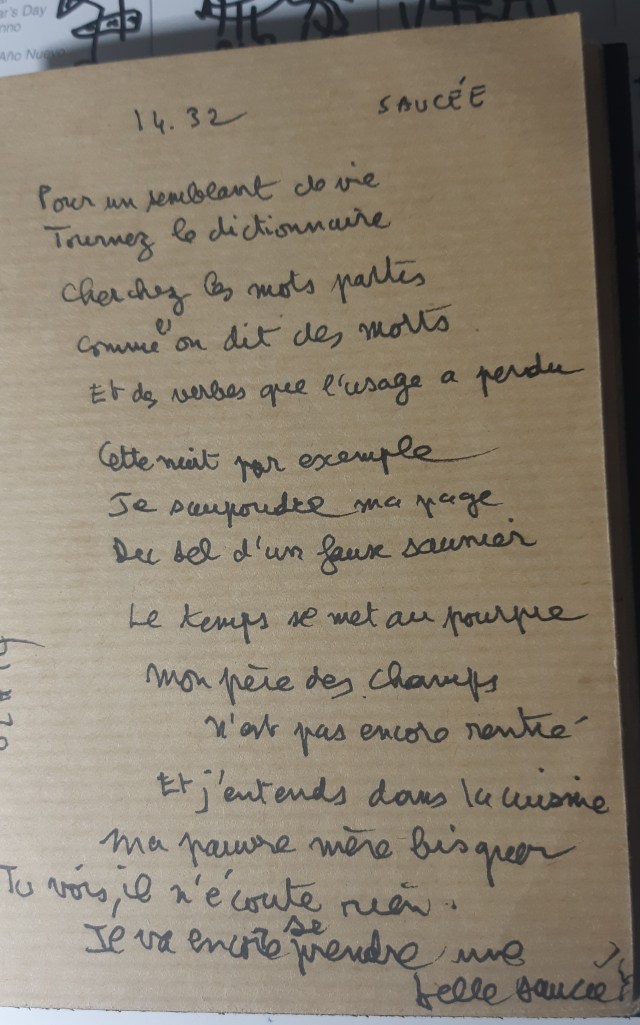 ar's Day
nno
Año Nuevo
14.32 SAUCÉE
Pour un semblant de vie
Tournez le dictionnaire
Cherchez les mots partis
Comme l'on dit des morts
Et des verbes que l'usage a perdu
Cette nuit par exemple
Je saupoudre ma page
Du sel d'un faux saunier
Le temps se met au pourpre
Mon père des champs
n'est pas encore rentré
Et j'entends dans la cuisine
Ma pauvre mère bisquer
Tu vois, il n'écoute rien.
Il va encore se prendre une
belle saucée